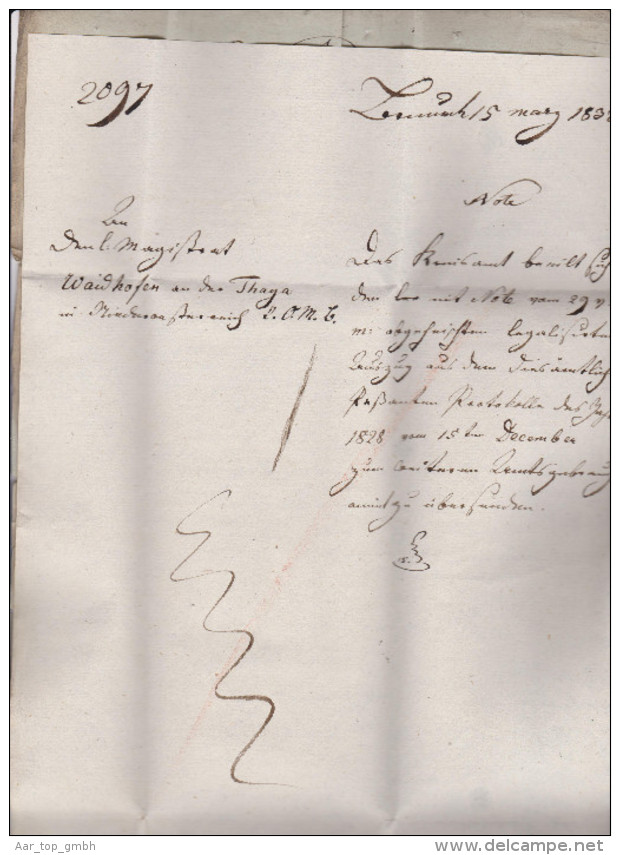 2097
15 marz 183
Note
An
den l. Magistrat
Waidhofen an der Thaya
in Niederoesterreich V.O.M.B.
Das Kreisamt beeilt sich
den mit Note vom 29 v
m: legalisirten
Auszug aus dem diesämtlich
Passanten Protokolle des Jah
1828 vom 15ten December
zum weiteren Amtsgebrauch
anmit zu übersenden.
Aar_top_gmbh
www.delcampe.net